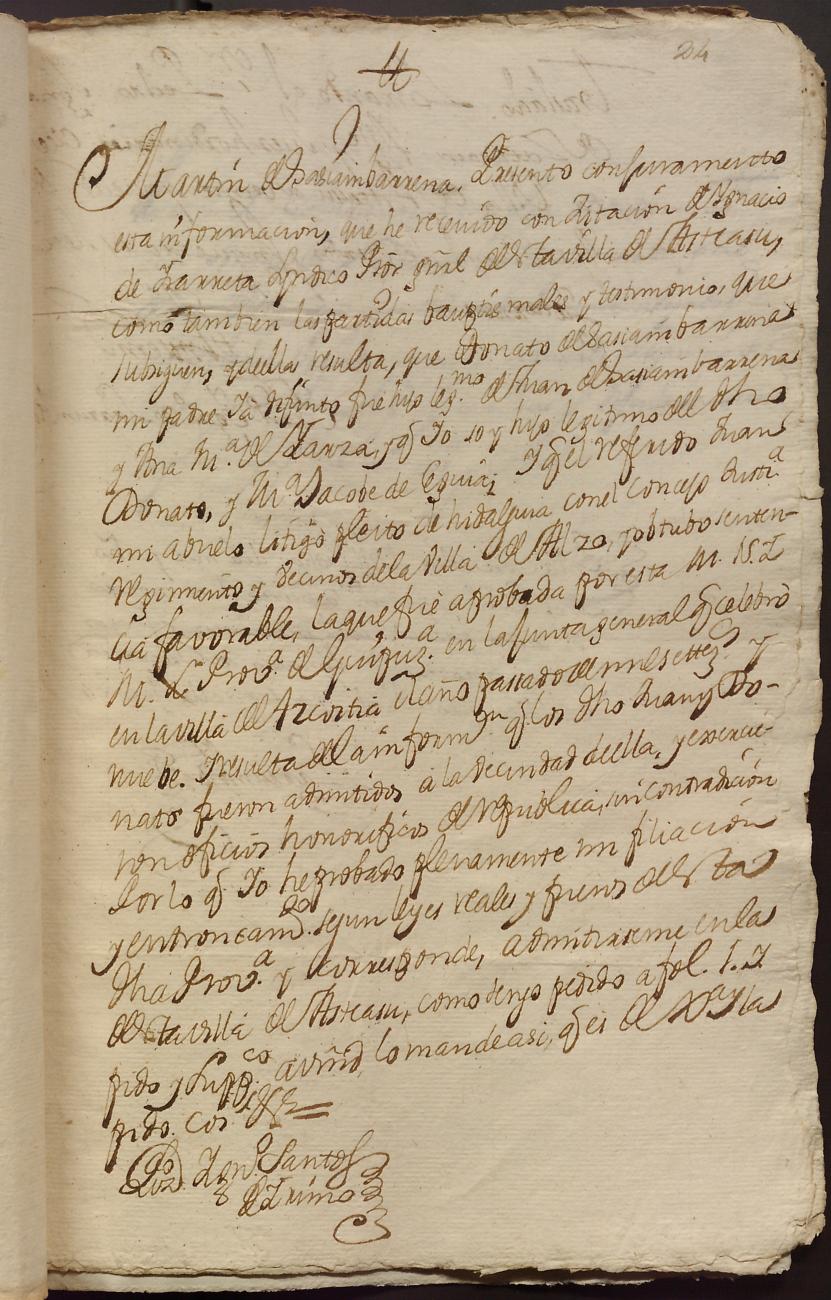 24
Martin de Sasiambarrena, Presento con juramento
esta informacion, que he recevido con zitación de Ygnacio
de Yzarreta Syndico Pror gñral de esta villa de Asteasu,
como tambien las partidas baptismales y testimonio, que
subsiguen, y de ella resulta, que Donato de Sasiambarrena
mi padre ya difunto fue hijo legmo de Juan de Sasiambarrena
y Ana Ma de Yarza, y q Yo soy hijo legitimo del dho
Donato, y Ma Jacobe de Eguia; Y q el referido Juan
mi abuelo litigò pleito de hidalguia con el Concejo Justa
regimiento y vecinos de la Villa de Alzo, y obtubo senten-
cia favorable, la que fuè aprobada por esta M. N. Y
M. L. Prova de Guipuza en la junta general q celebrò
en la villa de Azcoitia el año passado de mil settez y
nuebe. Y resulta de la informon q los dho Juan y Do-
nato fueron admitidos a la vecindad de ella, y exercie-
ron oficios honorificos de republica, sin contradicion
Por lo q Yo he probado plenamente mi filiación
y entroncamto segun leyes reales y fueros de esta
dha Prova y corresponde, admitirseme en la
de esta villa de Asteasu, como tengo pedido a fol. 1. Y
pido y suppco a vmd, lo mande asi, q es de Xa y la
pido. Cos &a =
Ldo Dn Santos
de Yrimo